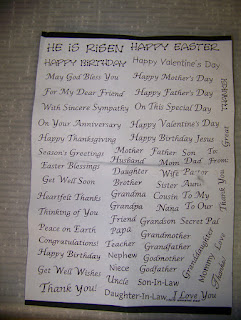 HE IS RISEN HAPPY EASTER
HAPPY BIRTHDAY Happy Valentine's Day
May God Bless You Happy Mother's Day
For My Dear Friend Happy Father's Day
With Sincere Sympathy On This Special Day
On Your Anniversary Happy Valentine's Day
Happy Thanksgiving Happy Birthday Jesus
Season's Greetings Mother Father Son To
Easter Blessings Husband Mom Dad From:
Get Well Soon Daughter Wife Pastor
Brother Sister Aunt
Heartfelt Thanks Grandma Cousin To My
Thinking of You Grandpa Nana To Our
Peace on Earth Friend Grandson Secret Pal
Papa Grandmother
Congratulations! Teacher Grandfather
Happy Birthday Nephew Godmother
Get Well Wishes Niece Godfather
Uncle Son-In-Law
Thank You! Daughter-In-Law I Love You
Great
Thank You
Granddaughter
Mommy Love
Thanks